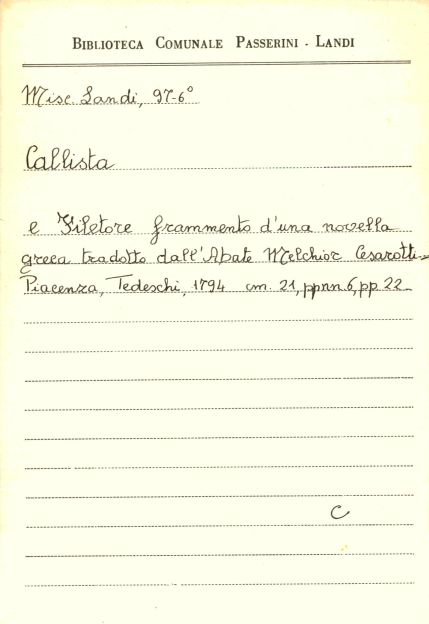 BIBLIOTECA COMUNALE PASSERINI - LANDI
Misc. Landi, 97-6°
Callista
e Filetore frammento d'una novella
greca tradotto dall'Abate Melchior Cesarotti -
Piacenza, Tedeschi, 1794 cm. 21, ppnn 6, pp 22 -
C